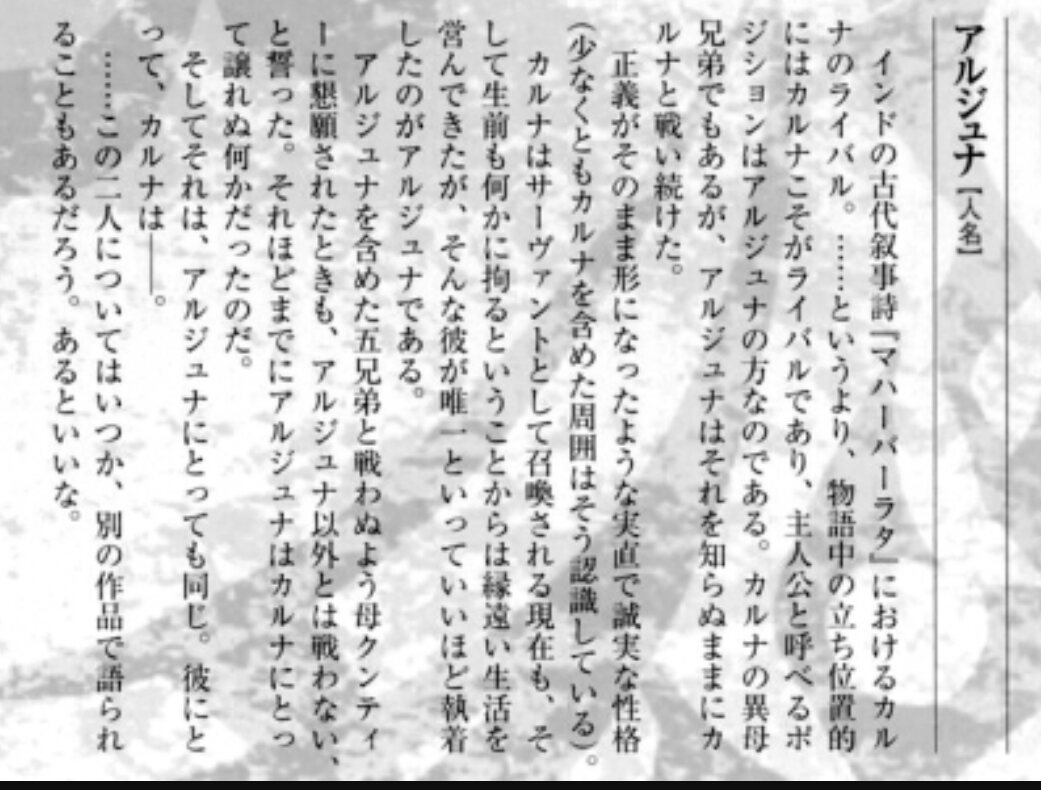 アルジュナ【人名】
インドの古代叙事詩『マハーバーラタ』におけるカル
ナのライバル。……というより、物語中の立ち位置的
にはカルナこそがライバルであり、主人公と呼べるポ
ジションはアルジュナの方なのである。カルナの異母
兄弟でもあるが、アルジュナはそれを知らぬままにカ
ルナと戦い続けた。
正義がそのまま形になったような実直で誠実な性格
(少なくともカルナを含めた周囲はそう認識している)。
カルナはサーヴァントとして召喚される現在も、そ
して生前も何かに拘るということからは縁遠い生活を
営んできたが、そんな彼が唯一といっていいほど執着
したのがアルジュナである。
アルジュナを含めた五兄弟と戦わぬよう母クンティ
ーに懇願されたときも、アルジュナ以外とは戦わない、
と誓った。それほどまでにアルジュナはカルナにとっ
て譲れぬ何かだったのだ。
そしてそれは、アルジュナにとっても同じ。彼にと
って、カルナは――。
……この二人についてはいつか、別の作品で語られ
ることもあるだろう。あるといいな。